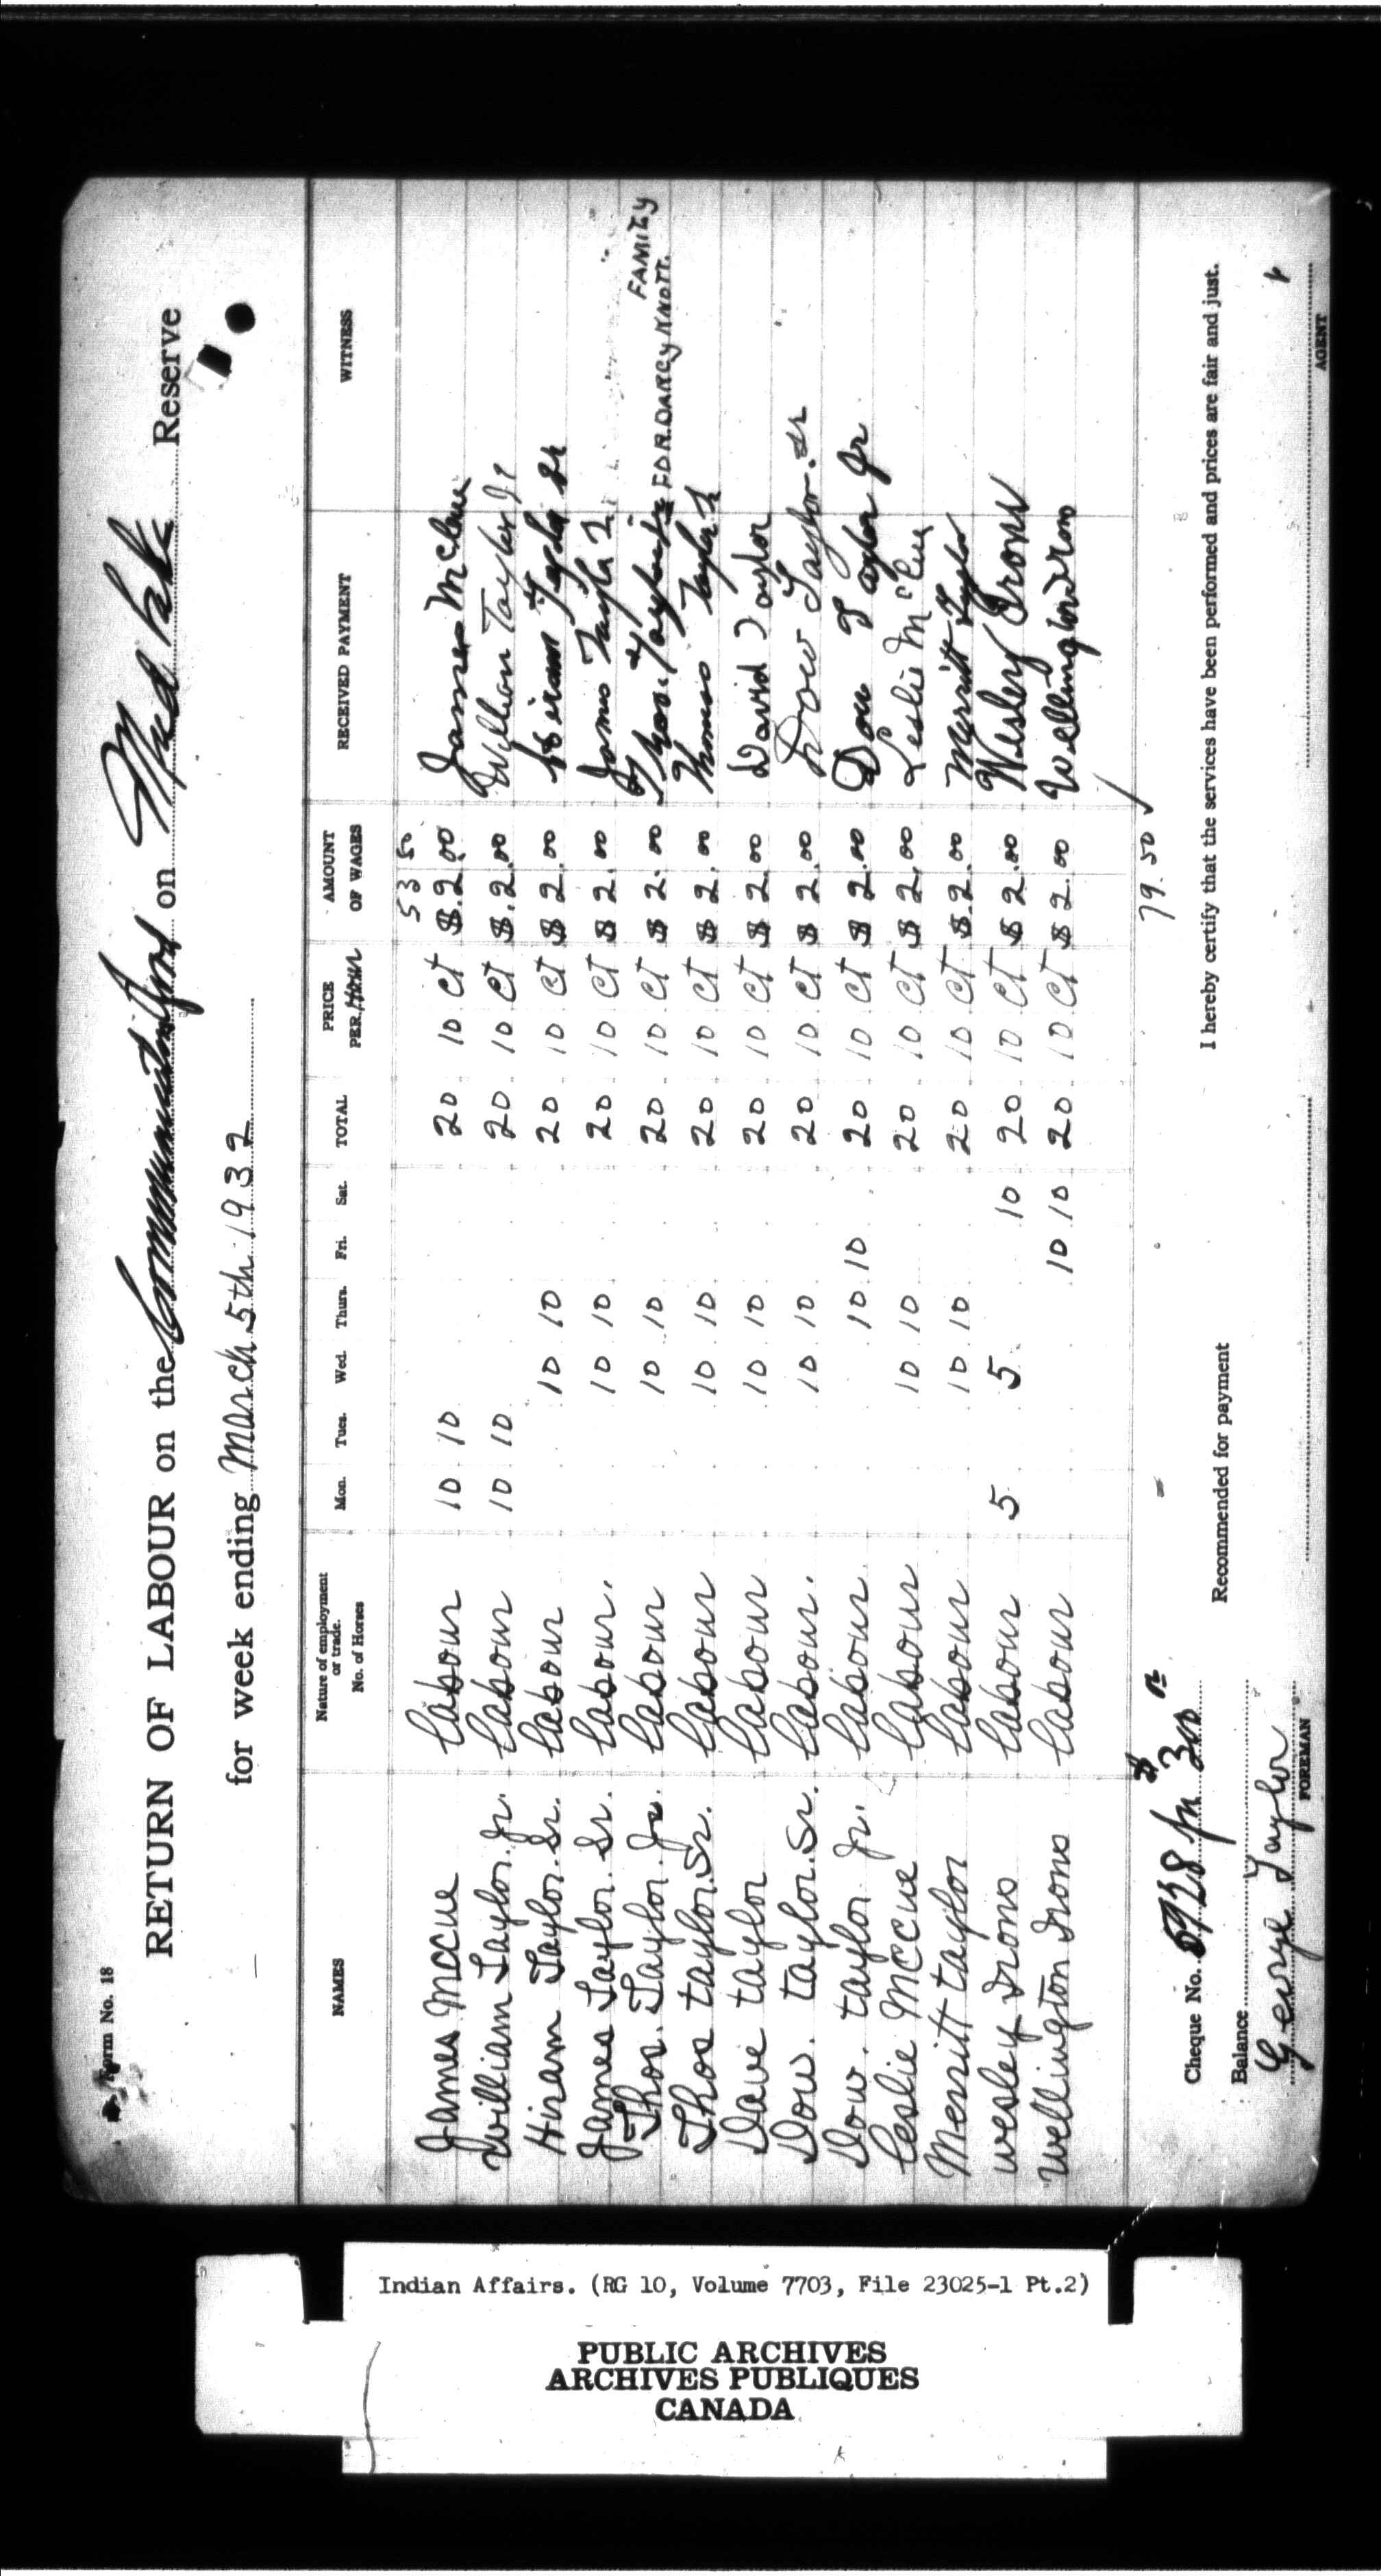 Form No. 18
RETURN OF LABOUR on the Community on Mud Lake Reserve
for week ending March 5th 1932
NAMES Nature of employment or trade. No. of Horses Mon. Tues. Wed. Thurs. Fri. Sat. TOTAL PRICE PER Hour AMOUNT OF WAGES RECEIVED PAYMENT WITNESS
53 50
James McCue Labour 10 10 20 10 ct $.2.00 James McCue
William Taylor Jr. Labour 10 10 20 10 ct $.2.00 William Taylor Jr
Hiram Taylor Sr. Labour 10 10 20 10 ct $ 2.00 Hiram Taylor Sr
James Taylor Sr. Labour. 10 10 20 10 ct $ 2.00 James Taylor
Thos. Taylor Jr. Labour 10 10 20 10 ct $ 2.00 Thos. Taylor Jr FOR DARCY KNOTT. FAMILY
Thos taylor Sr. Labour 10 10 20 10 ct $ 2.00 Thomas Taylor Sr
Dave taylor Labour 10 10 20 10 ct $ 2.00 David Taylor
Dow. taylor Sr. Labour. 10 10 20 10 ct $ 2.00 Dow Taylor. Sr
Dow. taylor Jr. Labour 10 10 20 10 ct $ 2.00 Dow Taylor Jr
Leslie McCue Labour 10 10 20 10 ct $ 2.00 Leslie McCue
Merritt taylor Labour 10 10 20 10 ct $.2.00 Merritt Taylor
Wesley Irons Labour 5 5 10 20 10 ct $ 2.00 Wesley Irons
Wellington Irons Labour 10 10 20 10 ct $ 2.00 Wellington Irons
79.50 ✓
Cheque No. 5928 for $300
Recommended for payment
I hereby certify that the services have been performed and prices are fair and just.
Balance
George Taylor
FOREMAN
AGENT
Indian Affairs. (RG 10, Volume 7703, File 23025-1 Pt.2)
PUBLIC ARCHIVES
ARCHIVES PUBLIQUES
CANADA